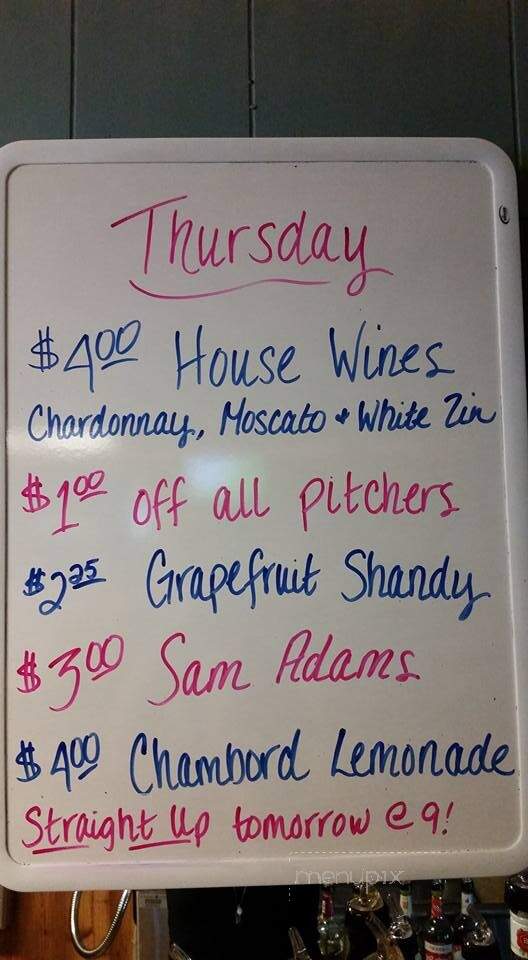 Thursday
$4.00 House Wines
Chardonnay, Moscato + White Zin
$1.00 off all pitchers
$2.25 Grapefruit Shandy
$3.00 Sam Adams
$4.00 Chambord Lemonade
Straight Up tomorrow @ 9!
menupix